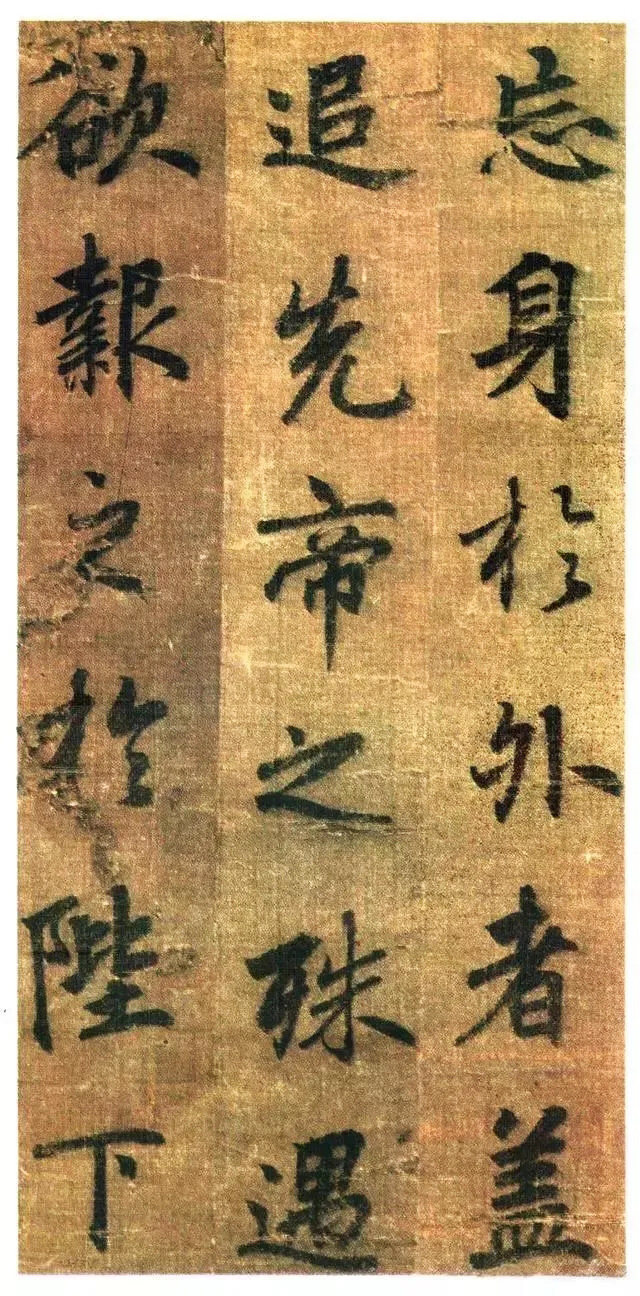 忘身於外者盖
追先帝之殊遇
欲報之於陛下